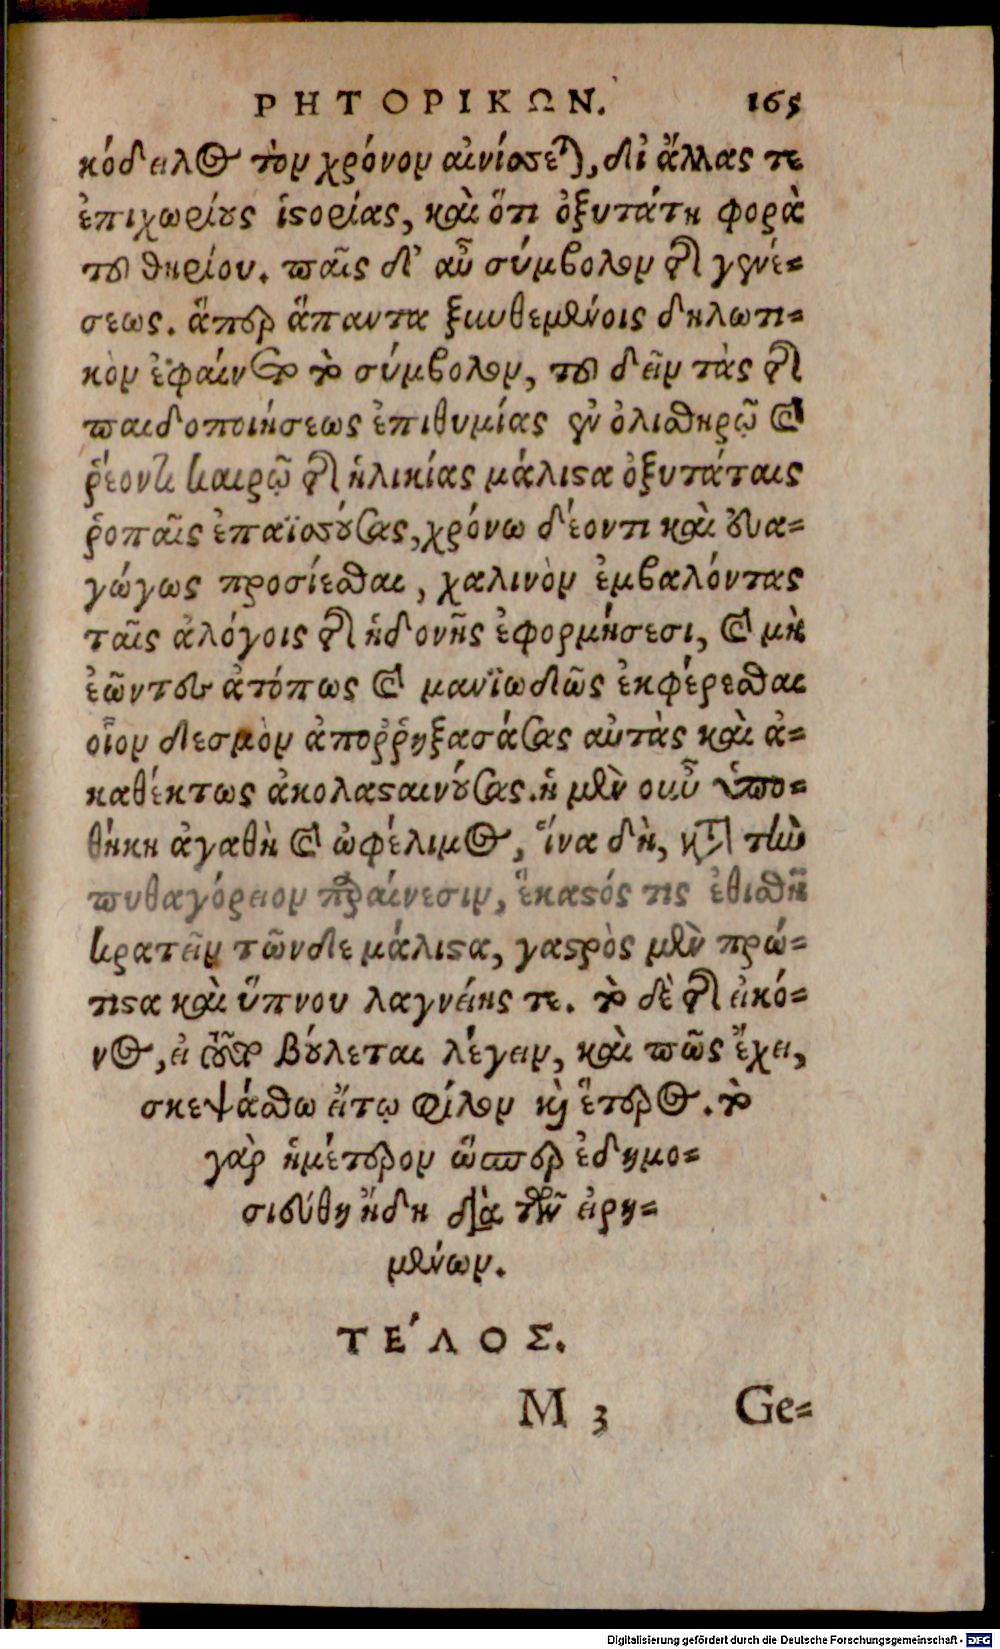 ΡΗΤΟΡΙΚΩΝ. 165
κόδειλος τὸν χρόνον αἰνίσσεται), δι' ἄλλας τε
ἐπιχωρίους ἱστορίας, καὶ ὅτι ὀξυτάτη φορὰ
τοῦ θηρίου. παῖς δ' αὖ σύμβολον τῆς γενέ-
σεως. ἅπερ ἅπαντα ξυνθεμένοις δηλωτι-
κὸν ἐφαίνετο τὸ σύμβολον, τοῦ δεῖν τὰς τῆς
παιδοποιήσεως ἐπιθυμίας ἐν ὀλισθηρῷ καὶ
ῥέοντι καιρῷ τῆς ἡλικίας μάλιστα ὀξυτάταις
ῥοπαῖς ἐπαϊσσούσας, χρόνω δέοντι καὶ εὐα-
γώγως προσίεσθαι, χαλινὸν ἐμβαλόντας
ταῖς ἀλόγοις τῆς ἡδονῆς ἐφορμήσεσι, καὶ μὴ
ἐῶντες ἀτόπως καὶ μανϊωδῶς ἐκφέρεσθαι
οἷον δεσμὸν ἀποῤῥηξασάσας αὐτὰς καὶ ἀ-
καθέκτως ἀκολασταινούσας. ἡ μὲν οὖν ὑπο-
θήκη ἀγαθὴ καὶ ὠφέλιμος, ἵνα δὴ, κατὰ τὴν
πυθαγόρειον παραίνεσιν, ἕκαστός τις ἐθισθῇ
κρατεῖν τῶνδε μάλιστα, γαστρὸς μὲν πρώ-
τιστα καὶ ὕπνου λαγνείης τε. τὸ δὲ τῆς εἰκό-
νος, εἰ τοῦτο βούλεται λέγειν, καὶ πῶς ἔχει,
σκεψάσθω εἴτῳ φίλον καὶ ἕτερος. τὸ
γὰρ ἡμέτερον ὥσπερ ἐδημο-
σιεύθη ἤδη διὰ τῶν εἰρη-
μένων.
ΤΕ'ΛΟΣ.
M 3 Ge-
Digitalisierung gefördert durch die Deutsche Forschungsgemeinschaft - DFG